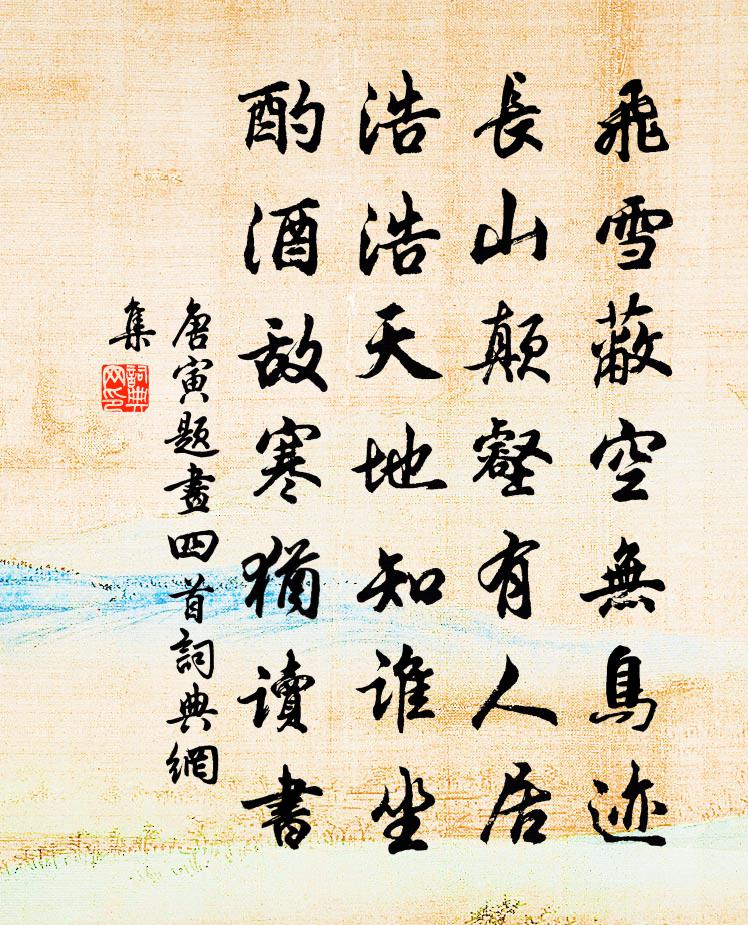 飛雪蔽空無鳥迹
長山顛壑有人居
浩浩天地知谁坐
酌酒敌寒猶讀書
唐寅題畫四首詞典網
集
詞典
网印